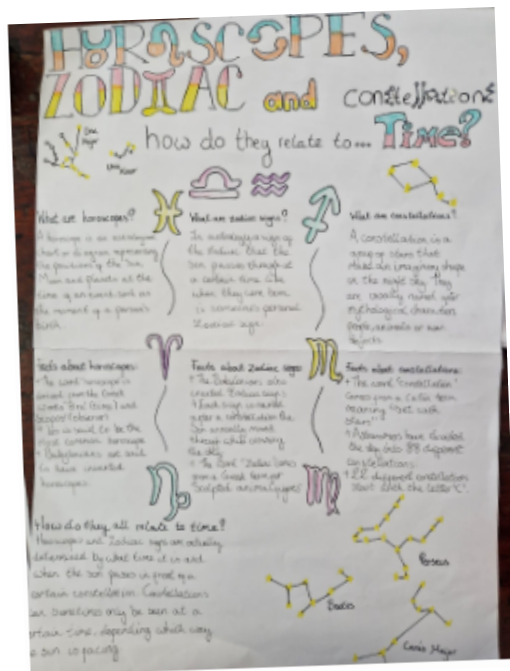 HOROSCOPES,
ZODIAC and constellations
how do they relate to... Time?
Ursa
Major
Ursa
Minor
What are horoscopes?
A horoscope is an astrological
chart or diagram representing
the positions of the Sun,
Moon and planets at the
time of an event, such as
the moment of a person's
birth.
What are zodiac signs?
In astrology a sign of
the Zodiac that the
sun passes through at
a certain time like
when they were born
is someone's personal
Zodiac sign.
What are constellations?
A constellation is a
group of stars that
make an imaginary shape
in the night sky. They
are usually named after
mythological characters,
people, animals or
objects.
Facts about horoscopes:
• The word 'horoscope' is
derived from the Greek
words and
observer
• Leo is said to be the
most common horoscope
• Babylonians are said
to have invented
horoscopes.
Facts about Zodiac signs:
• The Babylonians also
created Zodiac signs
• Each sign is named
after a constellation the
Sun annually moves
through while crossing
the sky
• The word 'Zodiac' comes
from a Greek term for
'sculpted animal figures'
Facts about constellations:
• The word 'Constellation'
comes from a Latin term
meaning 'set with
stars'
• Astronomers have divided
the sky into 88 different
constellations.
• 22 different constellations
start with the letter 'C'.
How do they all relate to time?
Horoscopes and Zodiac signs are actually
determined by what time it is and
when the sun passes in front of a
certain constellation. Constellations
can sometimes only be seen at a
certain time, depending which way
the sun is facing.
Perseus
Canis Major